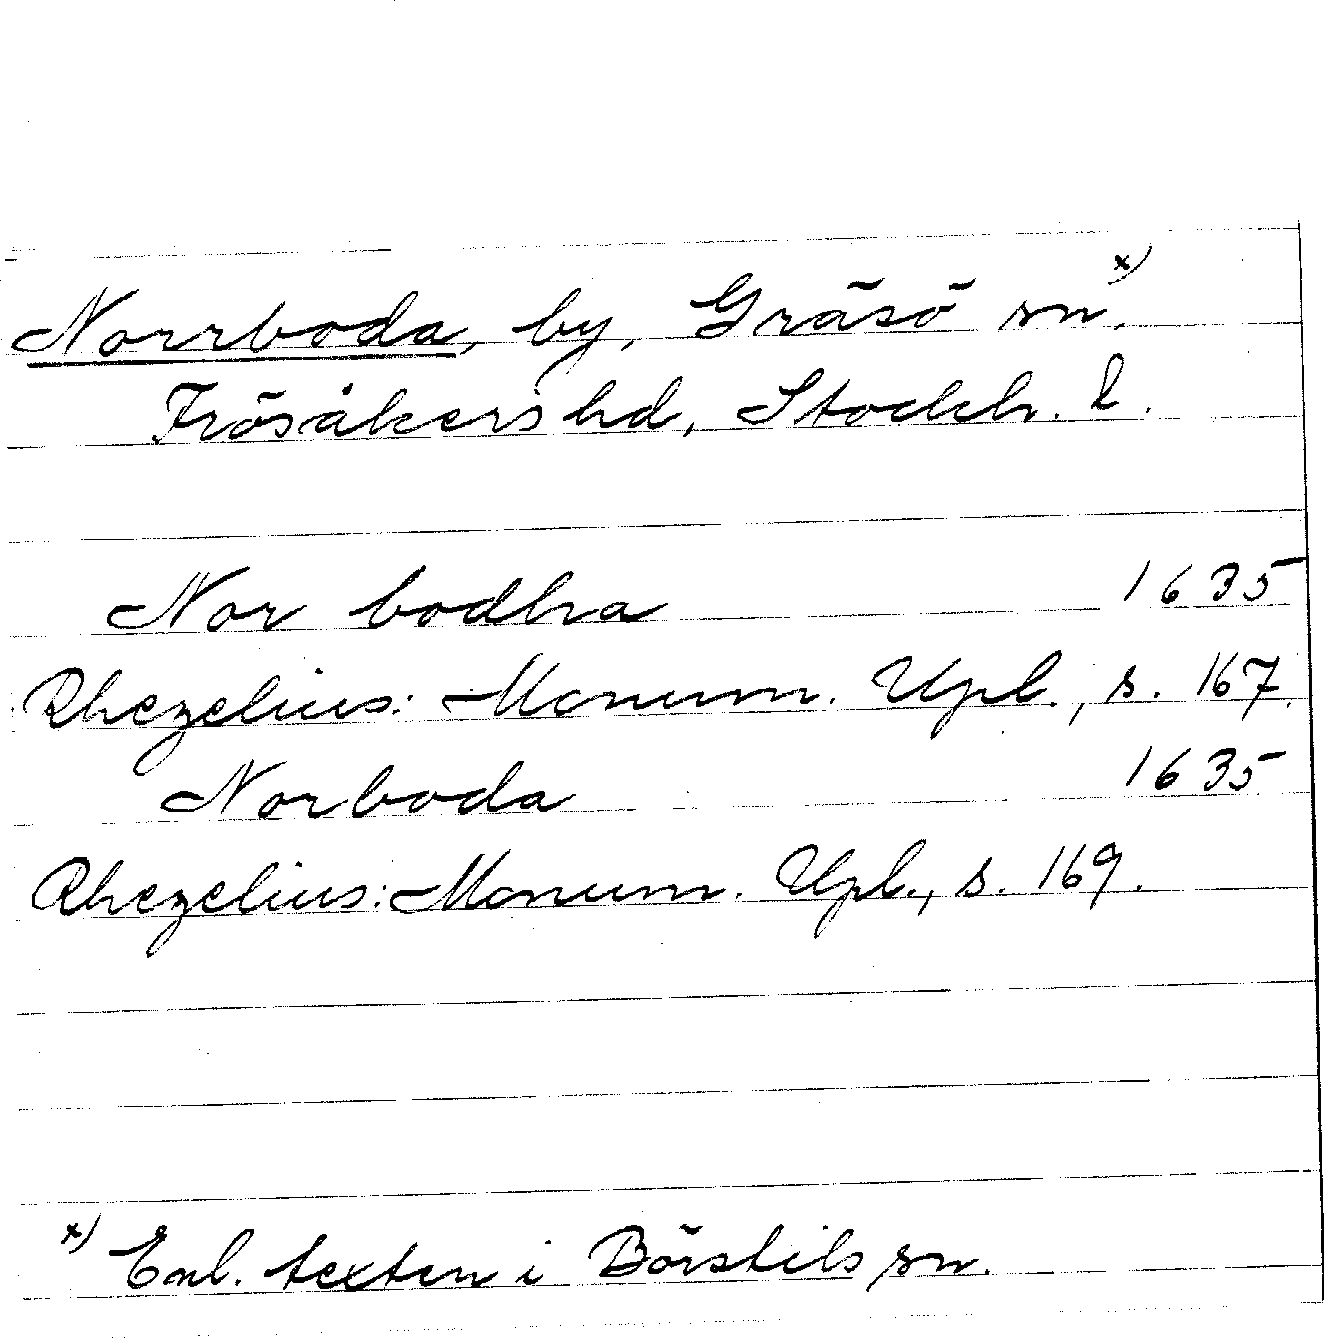 Norrboda, by, Gräsö sn. x)
Frösåkers hd, Stockh. l.
Nor bodha 1635
Rhezelius: Monum. Upl., s. 167.
Norboda 1635
Rhezelius: Monum. Upl., s. 169.
x) Enl. texten i Börstils sn.